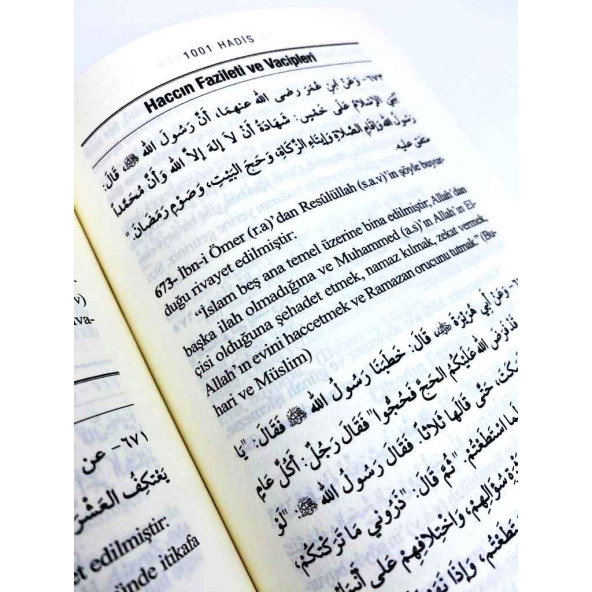 1001 HADİS
Haccın Fazileti ve Vacipleri
٦٧٣- وَعَنْ ابْنِ عُمَرَ رضى الله عنهما، أَنَّ رَسُولَ الله ﷺ، قَالَ:
بُنِيَ الإِسْلَامُ عَلَى خَمْسٍ: شَهَادَةُ أَنْ لَا إِلهَ إِلاَّ اللهُ وَأَنَّ مُحَمَّداً
رَسُولُ اللهِ وَإِقَامِ الصَّلَاةِ وَإِيتَاءِ الزَّكَاةِ، وَحَجِّ الْبَيْتِ، وَصَوْمِ رَمَضَانَ."
متفق عليه
673- İbn-i Ömer (r.a)'dan Resûlüllah (s.a.v)'in şöyle buyur-
duğu rivayet edilmiştir:
"İslam beş ana temel üzerine bina edilmiştir, Allah'dan
başka ilah olmadığına ve Muhammed (a.s)'ın Allah'ın El-
çisi olduğuna şehadet etmek, namaz kılmak, zekat vermek,
Allah'ın evini haccetmek ve Ramazan orucunu tutmak" (Bu-
hari ve Müslim)
وَعَنْ أَبِي هُرَيْرَةَ ﷺ قَالَ: خَطَبَنَا رَسُولُ الله ﷺ فَقَالَ: "يَا
قَدْ فَرَضَ اللهُ عَلَيْكُمُ الْحَجَّ فَحُجُّوا" فَقَالَ رَجُلٌ: أَكُلَّ عَامٍ
حَتَّى قَالَهَا ثَلَاثاً. فَقَالَ رَسُولُ الله ﷺ: "لَوْ
اسْتَطَعْتُمْ." ثُمَّ قَالَ: "ذَرُونِي مَا تَرَكْتُكُمْ،
سُؤَالِهِمْ، وَاخْتِلَافِهِمْ عَلَى
وَإِذَا
٦٧١- عن
يَعْتَكِفُ الْعَشْرَ
et edilmiştir:
ünde itikafa